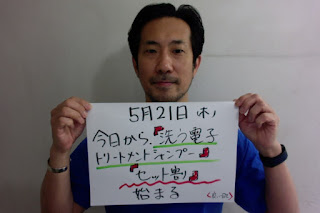 5月21日 木
今日から、洗う電子
トリートメントシャンプー
セット割
始まる